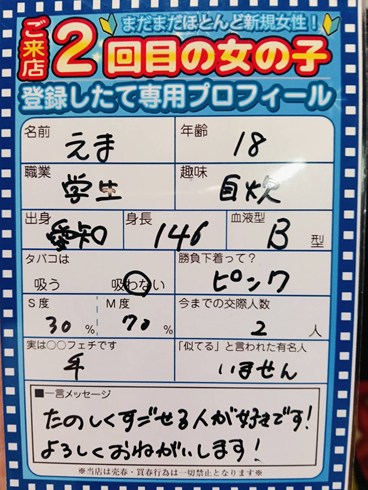 まだまだほとんど新規女性！
ご来店2回目の女の子
登録したて専用プロフィール
名前 えま 年齢 18
職業 学生 趣味 自炊
出身 愛知 身長 146 血液型 B 型
タバコは 吸う 吸わない 勝負下着って？ ピンク
S度 30 % M度 70 % 今までの交際人数 2 人
実は○○フェチです 手 「似てる」と言われた有名人 いません
■一言メッセージ
たのしくすごせる人が好きです！
よろしくおねがいします！
※当店は売春・買春行為は一切禁止となります※